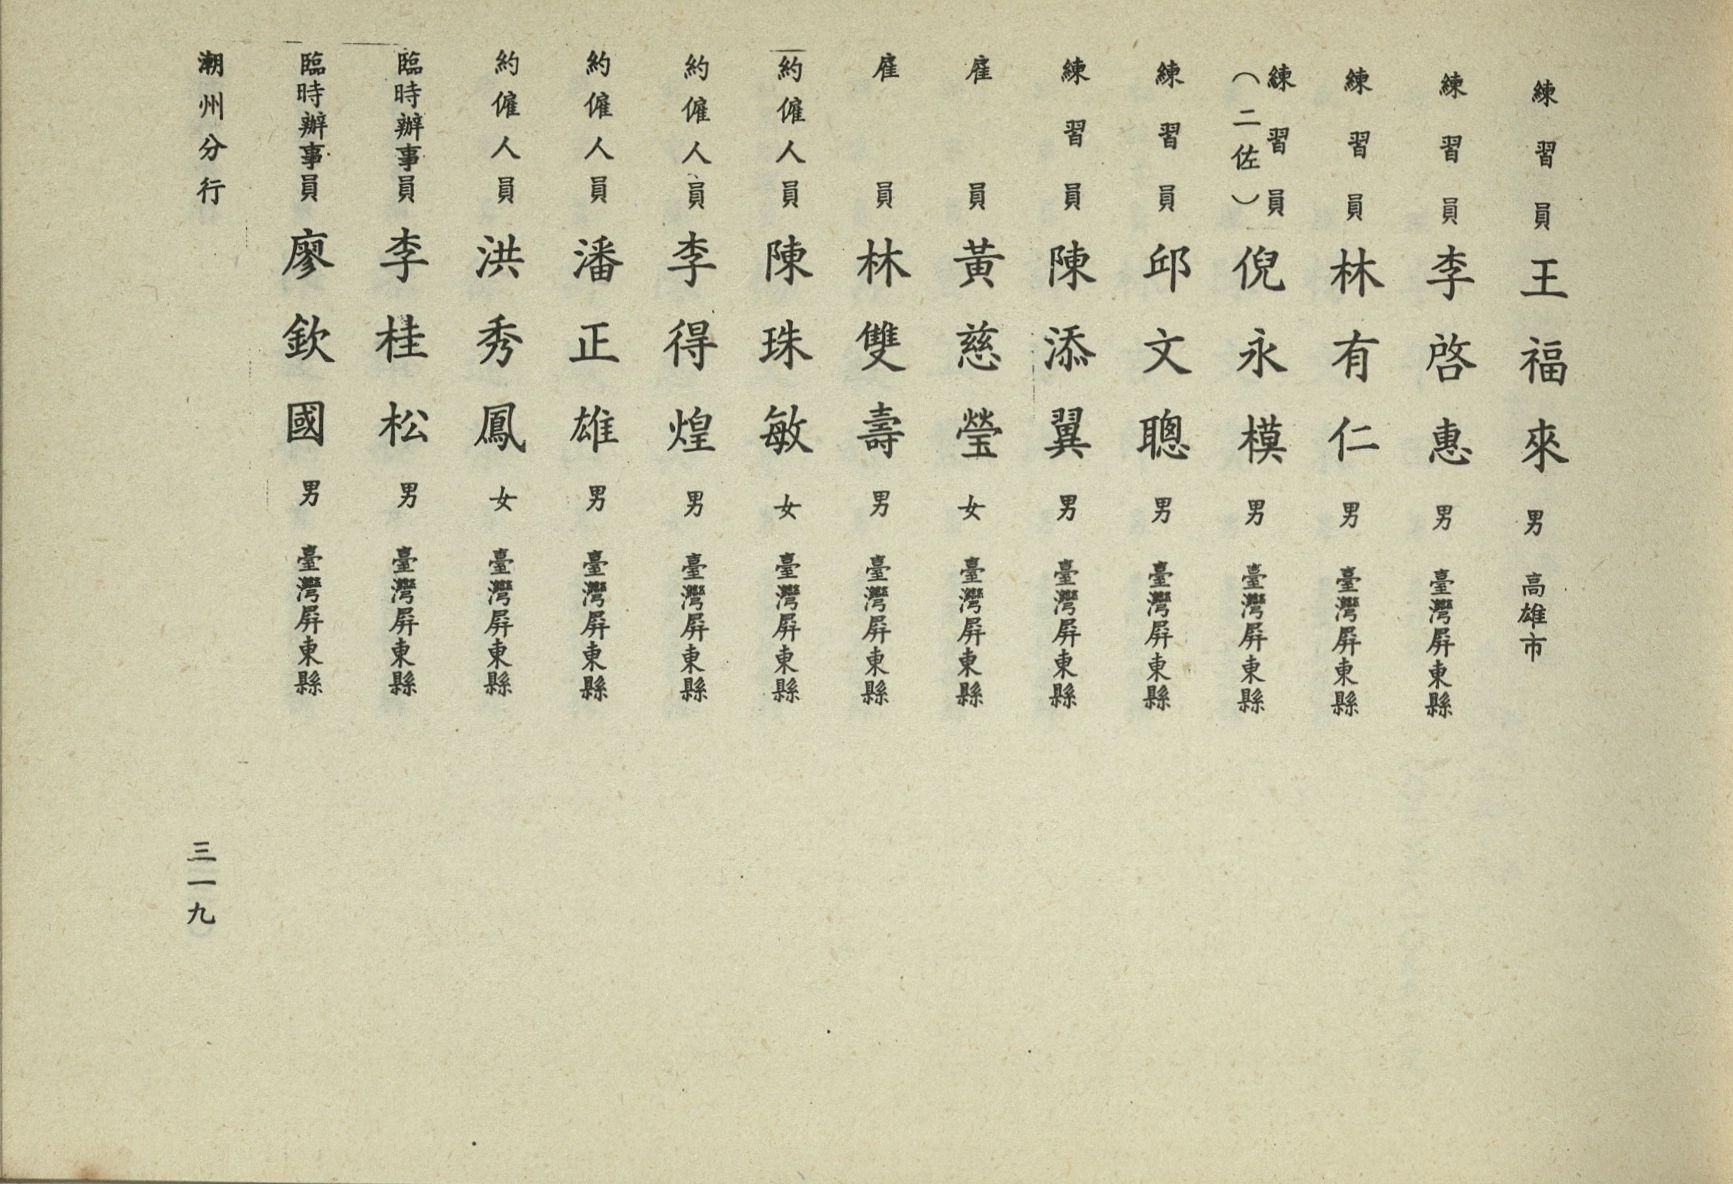 練習員 王福來 男 高雄市
練習員 李啓惠 男 臺灣屏東縣
練習員 林有仁 男 臺灣屏東縣
練習員（二佐） 倪永模 男 臺灣屏東縣
練習員 邱文聰 男 臺灣屏東縣
練習員 陳添翼 男 臺灣屏東縣
雇員 黃慈瑩 女 臺灣屏東縣
雇員 林雙壽 男 臺灣屏東縣
約僱人員 陳珠敏 女 臺灣屏東縣
約僱人員 李得煌 男 臺灣屏東縣
約僱人員 潘正雄 男 臺灣屏東縣
約僱人員 洪秀鳳 女 臺灣屏東縣
臨時辦事員 李桂松 男 臺灣屏東縣
臨時辦事員 廖欽國 男 臺灣屏東縣
潮州分行
三一九